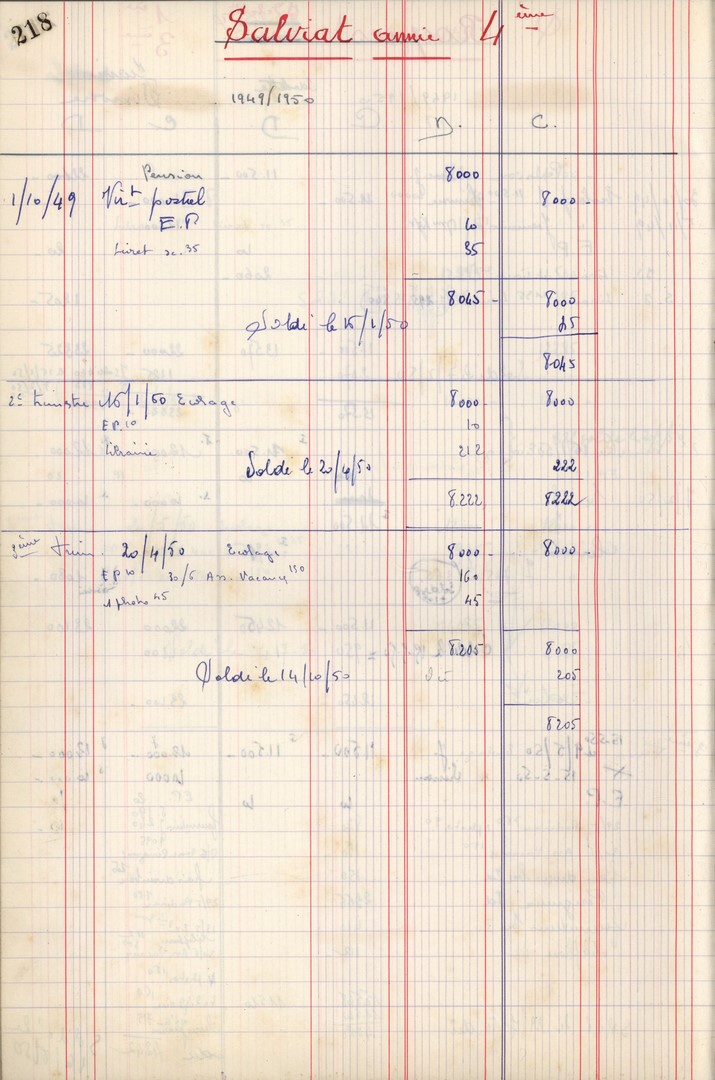 218
Salviat annie 4ème
1949/1950
D. C.
Pension 8000
1/10/49 Virt postal 8000 -
E.P. 10
Livret sc. 35 35
8045 - 8000
Soldé le 15/1/50 45
8045
2e trimstre 16/1/50 Ecolage 8000 - 8000
EP. 10 10
librairie 212
Solde le 20/4/50 222
8222 8222
3ème trim. 20/4/50 Ecolage 8000 - 8000 -
EP 10 30/6 Ass. Vacances 150 160
1 photo 45 45
8205 8000
Soldé le 14/10/50 Dû 205
8205